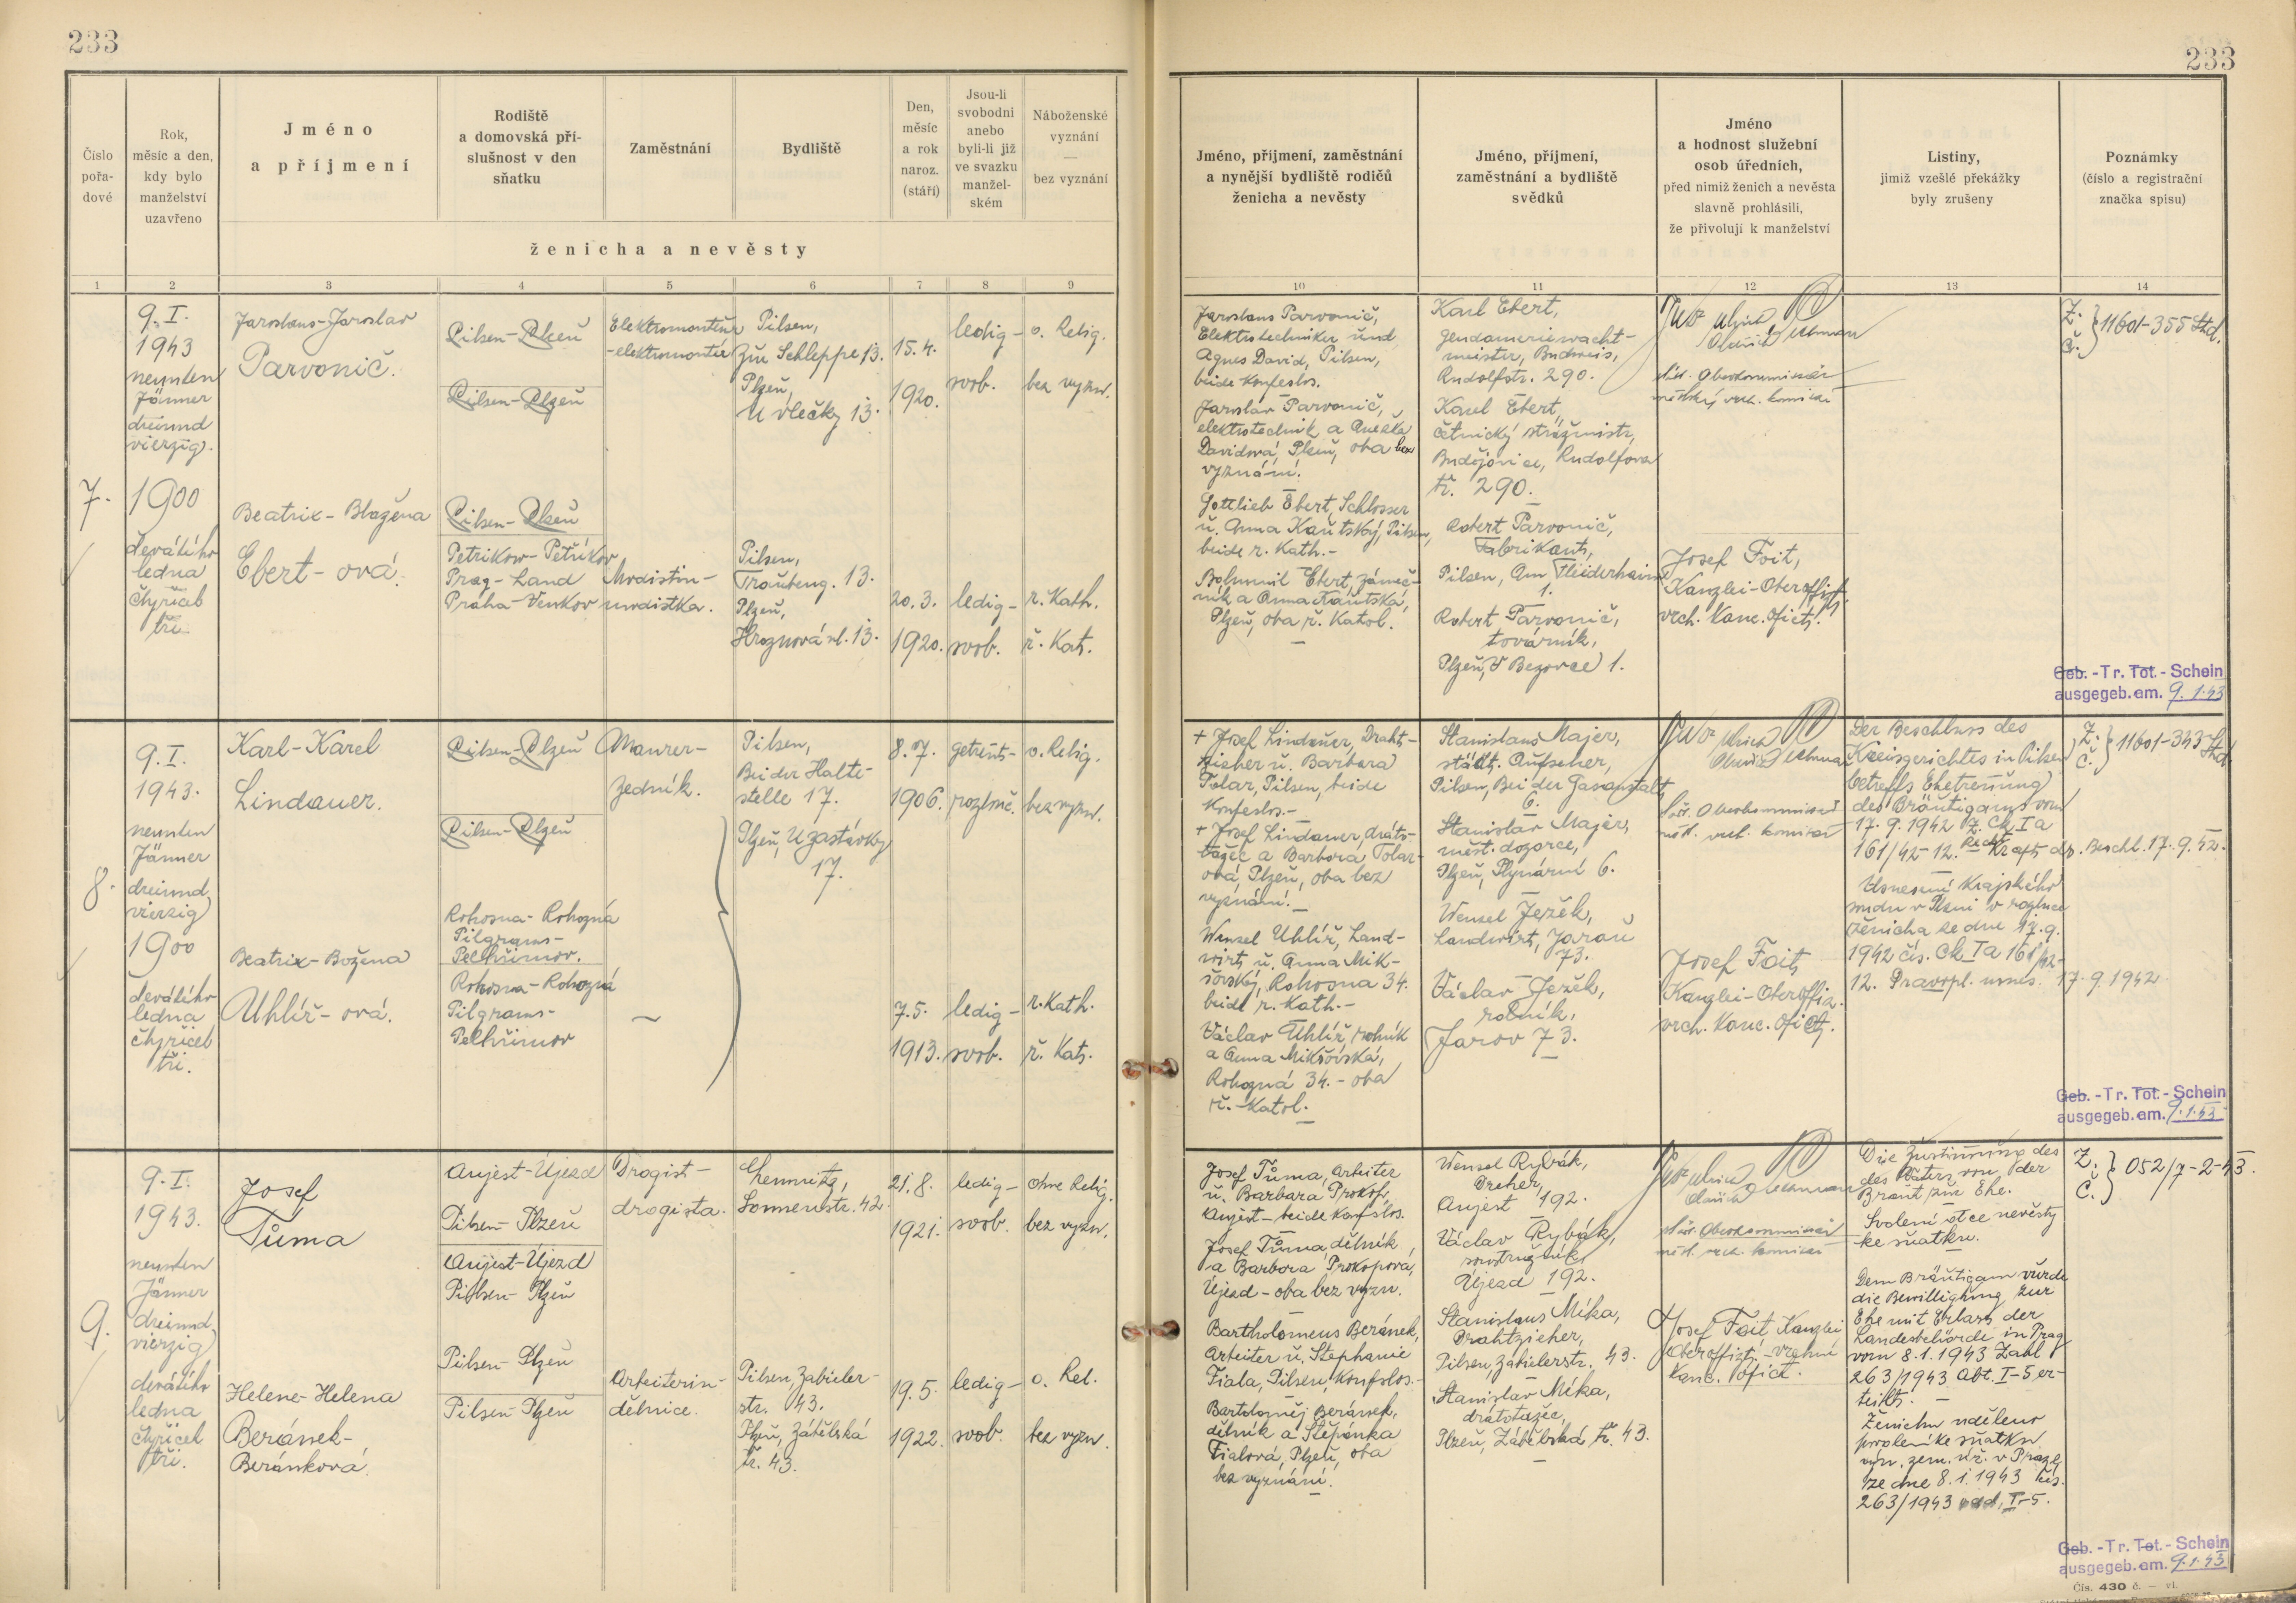 233
233
Číslo
pořa-
dové
Rok,
měsíc a den,
kdy bylo
manželství
uzavřeno
Jméno
a příjmení
Rodiště
a domovská pří-
slušnost v den
sňatku
Zaměstnání
Bydliště
Den,
měsíc
a rok
naroz.
(stáří)
Jsou-li
svobodni
anebo
byli-li již
ve svazku
manžel-
ském
Náboženské
vyznání
—
bez vyznání
ženicha a nevěsty
Jméno, příjmení, zaměstnání
a nynější bydliště rodičů
ženicha a nevěsty
Jméno, příjmení,
zaměstnání a bydliště
svědků
Jméno
a hodnost služební
osob úředních,
před nimiž ženich a nevěsta
slavně prohlásili,
že přivolují k manželství
Listiny,
jimiž vzešlé překážky
byly zrušeny
Poznámky
(číslo a registrační
značka spisu)
1 2 3 4 5 6 7 8 9 10 11 12 13 14
7.
9. I.
1943
neunten
Jänner
dreiund
vierzig.
1900
devátého
ledna
čtyřicet
tři.
Jaroslaus-Jaroslav
Parvonič.
Pilsen-Plzeň
Pilsen-Plzeň
Elektromonteur
-elektromontér
Pilsen,
Zur Schleppe 13.
Plzeň,
U vlečky 13.
15. 4.
1920.
ledig-
svob.
o. Relig.
bez vyzn.
Beatrix-Blažena
Ebert-ová.
Pilsen-Plzeň
Petrikow-Petříkov
Prag-Land
Praha-Venkov
Modistin-
modistka.
Pilsen,
Traubeng. 13.
Plzeň,
Hroznová ul. 13.
20. 3.
1920.
ledig-
svob.
r. Kath.
ř. Kat.
Jaroslaus Parvonič,
Elektrotechniker und
Agnes David, Pilsen,
beide Konfeslos.
Jaroslav Parvonič,
elektrotechnik a Anežka
Davidová, Plzeň, oba bez
vyznání.
Gottlieb Ebert, Schlosser
u. Anna Kautský, Pilsen,
beide r. Kath.-
Bohumil Ebert, zámeč-
ník a Anna Kautská,
Plzeň, oba ř. Katol.
Karl Ebert,
Gendarmeriewacht-
meister, Budweis,
Rudolfstr. 290.
Karel Ebert,
četnický strážmistr,
Budějovice, Rudolfova
tř. 290.
Robert Parvonič,
Fabrikant,
Pilsen, Am Fliederhain
1.
Robert Parvonič,
továrník,
Plzeň, V Bezovce 1.
Oberkommissär
městský vrch. komisař
Josef Foit,
Kanzlei-Oberoffizt.
vrch. Kanc. ofict.
Z.
Č. } 11601-355 Std.
Geb.-Tr. Tot.-Schein
ausgegeb. am. 9.1.43
8.
9. I.
1943.
neunten
Jänner
dreiund
vierzig
1900
devátého
ledna
čtyřicet
tři.
Karl-Karel
Lindauer.
Pilsen-Plzeň
Pilsen-Plzeň
Maurer-
zedník.
Pilsen,
Bei der Halte-
stelle 17.
Plzeň, U zastávky
17.
8. 7.
1906.
getrennt-
rozluč.
o. Relig.
bez vyzn.
Beatrix-Božena
Uhlíř-ová.
Rohosna-Rohozná
Pilgrams-
Pelhřimov.
Rohosna-Rohozná
Pilgrams-
Pelhřimov
7. 5.
1913.
ledig-
svob.
r. Kath.
ř. Kat.
+ Josef Lindauer, Draht-
zieher u. Barbara
Tolar, Pilsen, beide
Konfeslos.-
+ Josef Lindauer, dráto-
tažec a Barbora Tolar-
ová, Plzeň, oba bez
vyznání.
Wenzel Uhlíř, Land-
wirt u. Anna Mik-
šovský, Rohosna 34.
beide r. Kath.-
Václav Uhlíř, rolník
a Anna Mikšovská,
Rohozná 34. - oba
ř.-Katol.
Stanislaus Majer,
städt. Aufseher,
Pilsen, Bei der Gasanstalt
6.
Stanislav Majer,
měst. dozorce,
Plzeň, Plynární 6.
Wenzel Ježek,
Landwirt, Jarau
73.
Václav Ježek,
rolník,
Jarov 73.
Oberkommissär
měst. vrch. komisař
Josef Foit
Kanzlei-Oberoffiz.
vrch. Kanc. ofict.
Der Beschluss des
Kreisgerichtes in Pilsen
betreffs Ehetrennung
des Bräutigams vom
17. 9. 1942 Z. Ck I a
161/42-12. Rechtskraft d. Beschl. 17. 9. 42.
Usnesení Krajského
soudu v Plzni o rozluce
ženicha ze dne 17. 9.
1942 čís. Ck I a 161/42-
12. Pravopl. usnes. 17. 9. 1942
Z.
Č. } 11601-343 Std.
Geb.-Tr. Tot.-Schein
ausgegeb. am. 9.1.43
9.
9. I.
1943.
neunten
Jänner
dreiund
vierzig
devátého
ledna
čtyřicet
tři.
Josef
Tůma
Aujest-Újezd
Pilsen-Plzeň
Aujest-Újezd
Pilsen-Plzeň
Drogist-
drogista.
Chemnitz,
Sonnenstr. 42.
21. 8.
1921.
ledig-
svob.
ohne Relig.
bez vyzn.
Helene-Helena
Beránek-
Beránková.
Pilsen-Plzeň
Pilsen-Plzeň
Arbeiterin-
dělnice.
Pilsen, Zabieler-
str. 43.
Plzeň, Zábělská
tř. 43.
19. 5.
1922.
ledig-
svob.
o. Rel.
bez vyzn.
Josef Tůma, Arbeiter
u. Barbara Prokop,
Aujest-beide Konfslos.
Josef Tůma, dělník
a Barbora Prokopova,
Újezd-oba bez vyzn.
Bartholomeus Beránek,
Arbeiter u. Stephanie
Fiala, Pilsen, Konfslos.-
Bartoloměj Beránek,
dělník a Štěpánka
Fialová, Plzeň, oba
bez vyznání.
Wenzel Rybák,
Dreher,
Aujest 192.
Václav Rybák,
soustružník,
Újezd 192.
Stanislaus Míka,
Drahtzieher,
Pilsen, Zabielerstr. 43.
Stanislav Míka,
drátotažec,
Plzeň, Zábělská tř. 43.
Oberkommissär
měst. vrch. komisař
Josef Foit, Kanzlei
Oberoffizt.-vrchní
Kanc. ofict.
Die Zustimmung des
des Vaters von der
Braut zur Ehe.
Svolení otce nevěsty
ke sňatku.
Dem Bräutigam wurde
die Bewilligung zur
Ehe mit Erlass der
Landesbehörde in Prag
vom 8. 1. 1943 Zahl
263/1943 Abt. I-5 er-
teilt.
Ženichu uděleno
povolení ke sňatku
výn. zem. úř. v Praze
ze dne 8. 1. 1943 čís.
263/1943 odd. I-5.
Z.
Č. } 052/7-2-43.
Geb.-Tr. Tot.-Schein
ausgegeb. am. 9.1.43
Čís. 430 č. — vl.